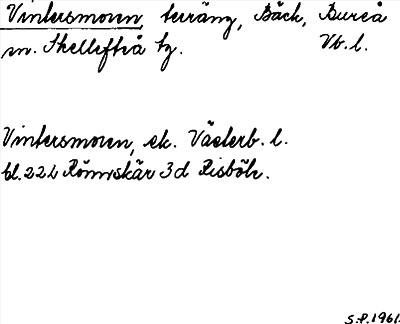 Vintersmoren, terräng, Bäck, Bureå
sn. Skellefteå tg. Vb. l.
Vintersmoren, ek. Västerb. l.
bl. 22 L Rönnskär 3d Risböle.
S.P. 1961.